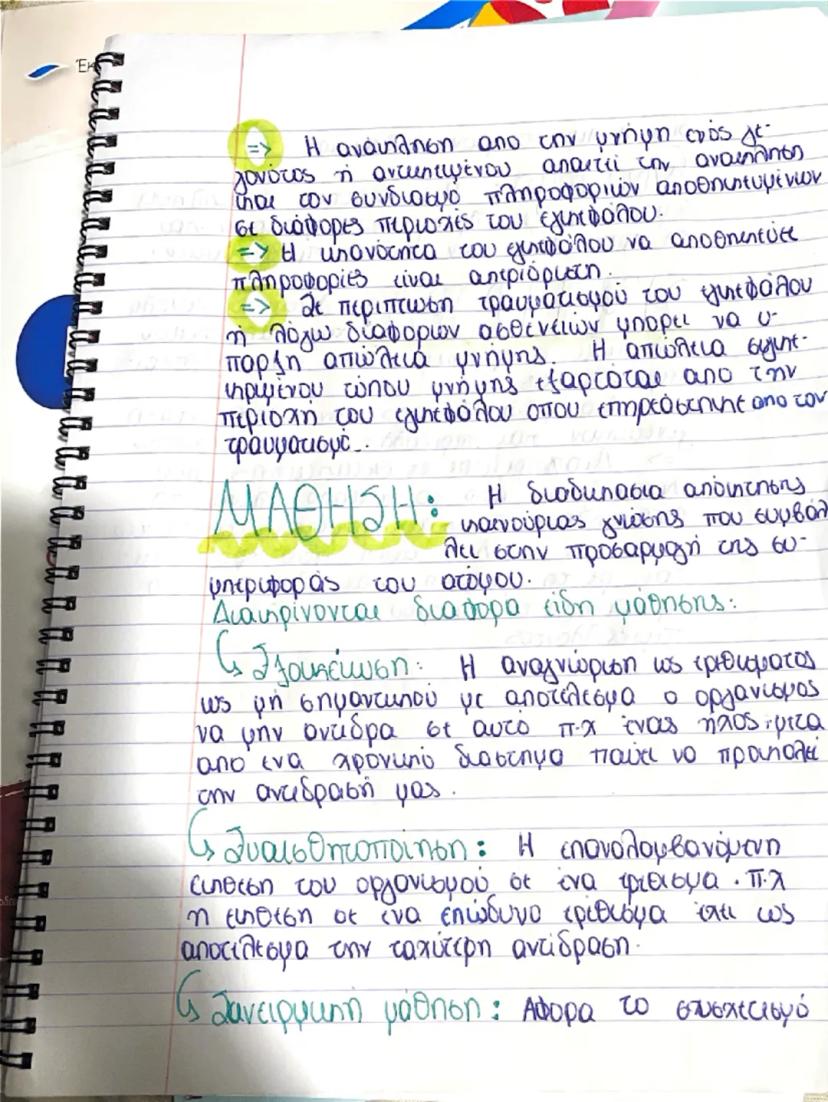 Έκ
=> Η ανάκληση απο την μνήμη ενός γε-
γονότος ή αντικειμένου απαιτεί την ανάκληση
και τον συνδιασμό πληροφοριών αποθηκευμένων
σε διάφορες περιοχές του εγκεφάλου.
=> Η ικανότητα του εγκεφάλου να αποθηκεύσει
πληροφορίες είναι απεριόριστη.
=> Σε περίπτωση τραυματισμού του εγκεφάλου
ή λόγω διάφορων ασθενειών μπορεί να υ-
πάρξη απώλεια μνήμης. Η απώλεια συγκε-
κριμένου τύπου μνήμης εξαρτάται απο την
περιοχή του εγκεφάλου οπου επηρεάστηκε απο τον
τραυματισμό.
ΜΑΘΗΣΗ: Η διαδικασία απόκτησης
καινούριας γνώσης που συμβάλ
λει στην προσαρμογή της συ-
μπεριφοράς του ατόμου.
Διακρίνονται διάφορα είδη μάθησης:
Εξοικείωση: Η αναγνώριση ως ερεθίσματος
ως μή σημαντικού με αποτέλεσμα ο οργανισμός
να μην αντιδρα σε αυτό π.χ ένας ήχος μετα
απο ένα χρονικό διάστημα παύει να προκαλεί
την αντίδρασή μας.
Ευαισθητοποίηση: Η επαναλαμβανόμενη
έκθεση του οργανισμού σε ένα ερέθισμα. π.χ
η έκθεση σε ένα επώδυνο ερέθισμα έχει ως
αποτέλεσμα την ταχύτερη αντίδραση.
Συνειρμική μάθηση: Αφορα το συσχετισμό